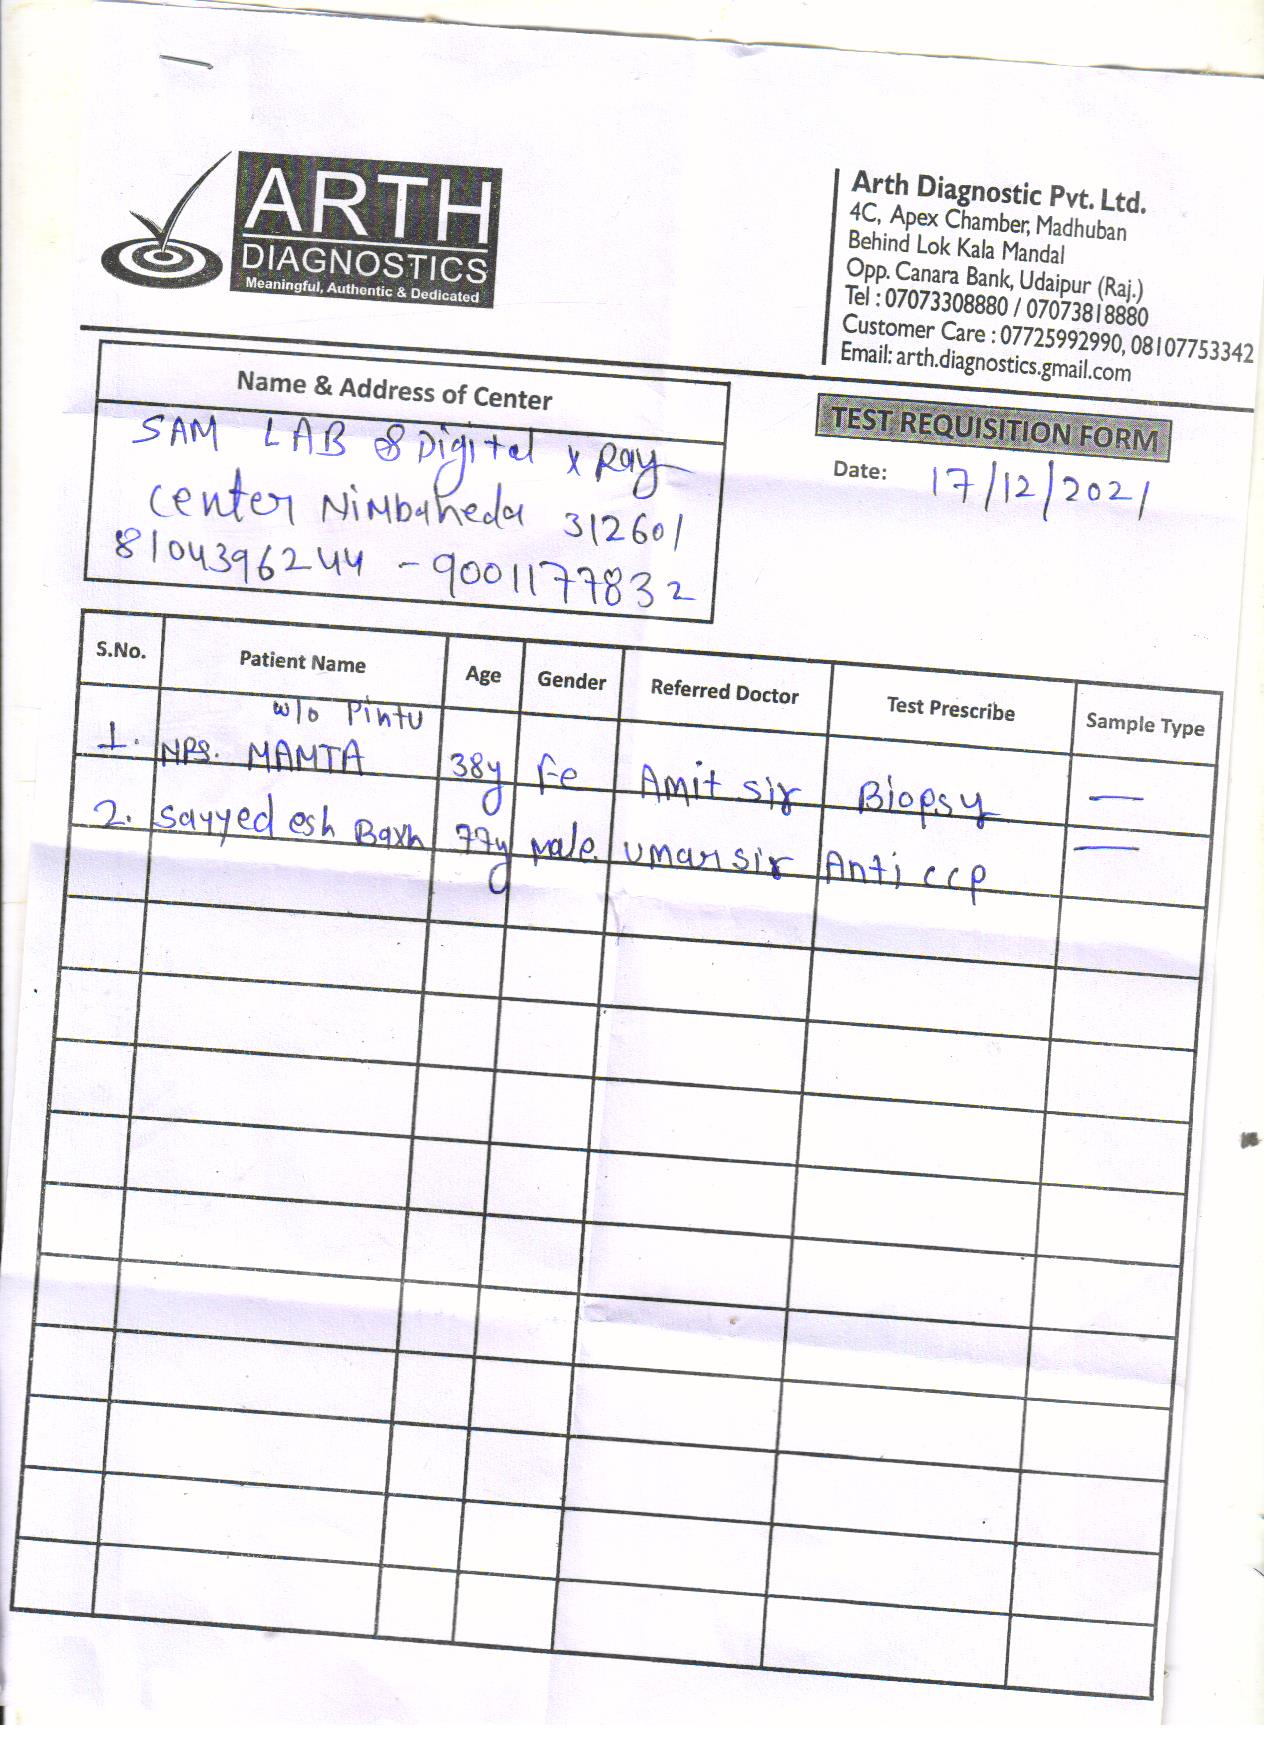 ARTH
DIAGNOSTICS
Meaningful, Authentic & Dedicated
Arth Diagnostic Pvt. Ltd.
4C, Apex Chamber, Madhuban
Behind Lok Kala Mandal
Opp. Canara Bank, Udaipur (Raj.)
Tel : 07073308880 / 07073818880
Customer Care : 07725992990, 08107753342
Email: arth.diagnostics.gmail.com
Name & Address of Center
SAM LAB & Digital x Ray
Center Nimbaheda 312601
8104396244 - 9001177832
TEST REQUISITION FORM
Date: 17/12/2021
S.No. Patient Name Age Gender Referred Doctor Test Prescribe Sample Type
w/o Pintu
1. MAMTA 38y Fe Amit sir Biopsy —
2. Sayyed esh Baxh 77y male. umar sir Anti ccp —